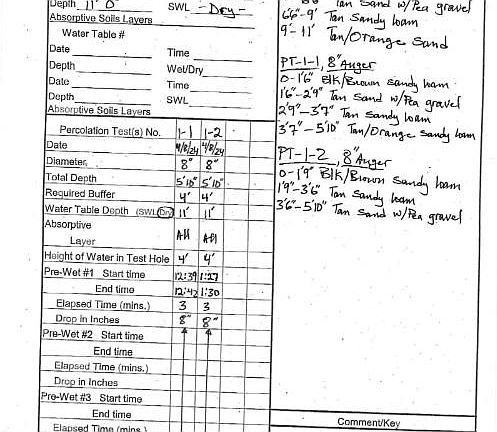 Depth 11' 0" SWL - Dry -
Absorptive Soils Layers
Water Table #
Date Time
Depth Wet/Dry
Date Time
Depth SWL
Absorptive Soils Layers
Percolation Test(s) No. 1-1 1-2
Date 4/8/24 4/8/24
Diameter 8" 8"
Total Depth 5'10" 5'10"
Required Buffer 4' 4'
Water Table Depth (SWL/Dry) 11' 11'
Absorptive
Layer All All
Height of Water in Test Hole 4' 4'
Pre-Wet #1 Start time 12:39 1:27
End time 12:42 1:30
Elapsed Time (mins.) 3 3
Drop in Inches 8" 8"
Pre-Wet #2 Start time
End time
Elapsed Time (mins.)
Drop in Inches
Pre-Wet #3 Start time
End time
Elapsed Time (mins.)
Tan Sand w/Pea gravel
6'6"-9' Tan Sandy loam
9'-11' Tan/Orange Sand
PT-1-1, 8" Auger
0-1'6" Blk/Brown sandy loam
1'6"-2'9" Tan Sand w/Pea gravel
2'9"-3'7" Tan Sandy loam
3'7"-5'10" Tan/Orange Sandy loam
PT-1-2, 8" Auger
0-1'9" Blk/Brown Sandy loam
1'9"-3'6" Tan Sandy loam
3'6"-5'10" Tan Sand w/Pea gravel
Comment/Key